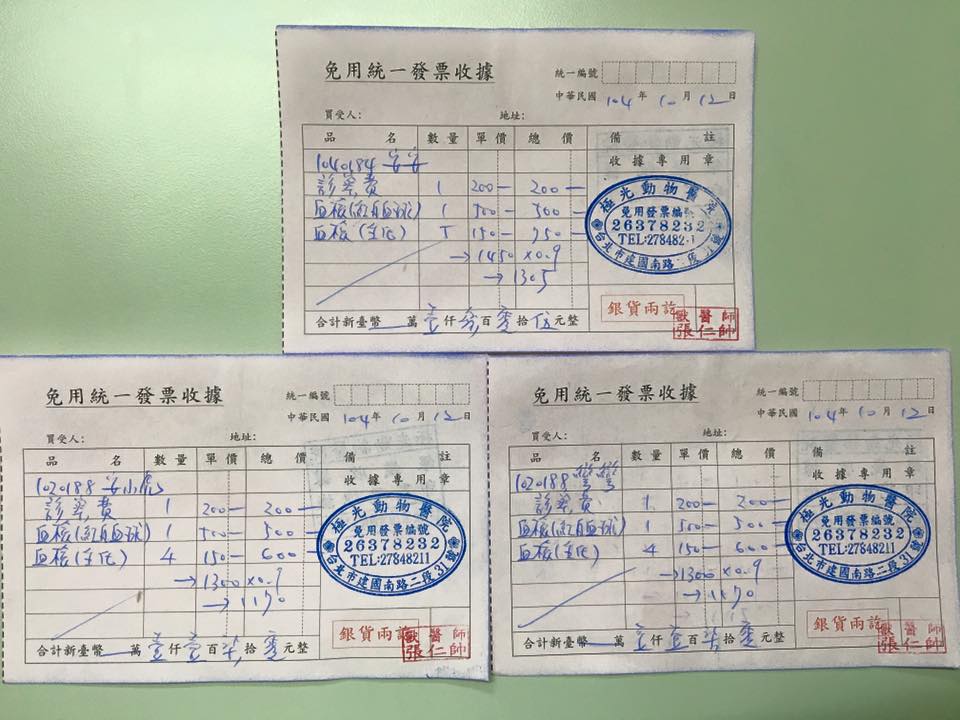 免用統一發票收據
統一編號
中華民國 104 年 10 月 12 日
買受人: 地址:
品 名 數量 單價 總價 備 註
1040184 安安 收據專用章
診察費 1 200— 200—
血檢(紅血球) 1 500— 500—
血檢(生化) 5 150— 750—
→1450×0.9
→1305
合計新臺幣 萬 壹 仟 參 百 零 拾 伍 元整
極光動物醫院
免用發票編號
26378232
TEL:278482
台北市建國南路二段
銀貨兩訖
獸醫師
張仁帥
免用統一發票收據
統一編號
中華民國 104 年 10 月 12 日
買受人: 地址:
品 名 數量 單價 總價 備 註
1020188 安小虎 收據專用章
診察費 1 200— 200—
血檢(紅血球) 1 500— 500—
血檢(生化) 4 150— 600—
→1300×0.9
→1170
合計新臺幣 萬 壹 仟 壹 百 柒 拾 零 元整
極光動物醫院
免用發票編號
26378232
TEL:27848211
台北市建國南路二段31號
銀貨兩訖
獸醫師
張仁帥
免用統一發票收據
統一編號
中華民國 104 年 10 月 12 日
買受人: 地址:
品 名 數量 單價 總價 備 註
1020188 彎彎 收據專用章
診察費 1 200— 200—
血檢(紅血球) 1 500— 500—
血檢(生化) 4 150— 600—
→1300×0.9
→1170
合計新臺幣 萬 壹 仟 壹 百 柒 拾 零 元整
極光動物醫院
免用發票編號
26378232
TEL:27848211
台北市建國南路二段31號
銀貨兩訖
獸醫師
張仁帥